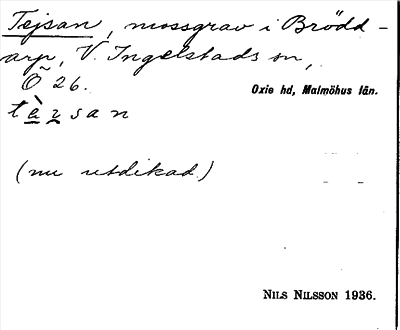 Tejsan, mossgrav i Brödd-
arp, V. Ingelstads sn,
Ö 26.
Oxie hd, Malmöhus län.
(nu utdikad)
NILS NILSSON 1936.